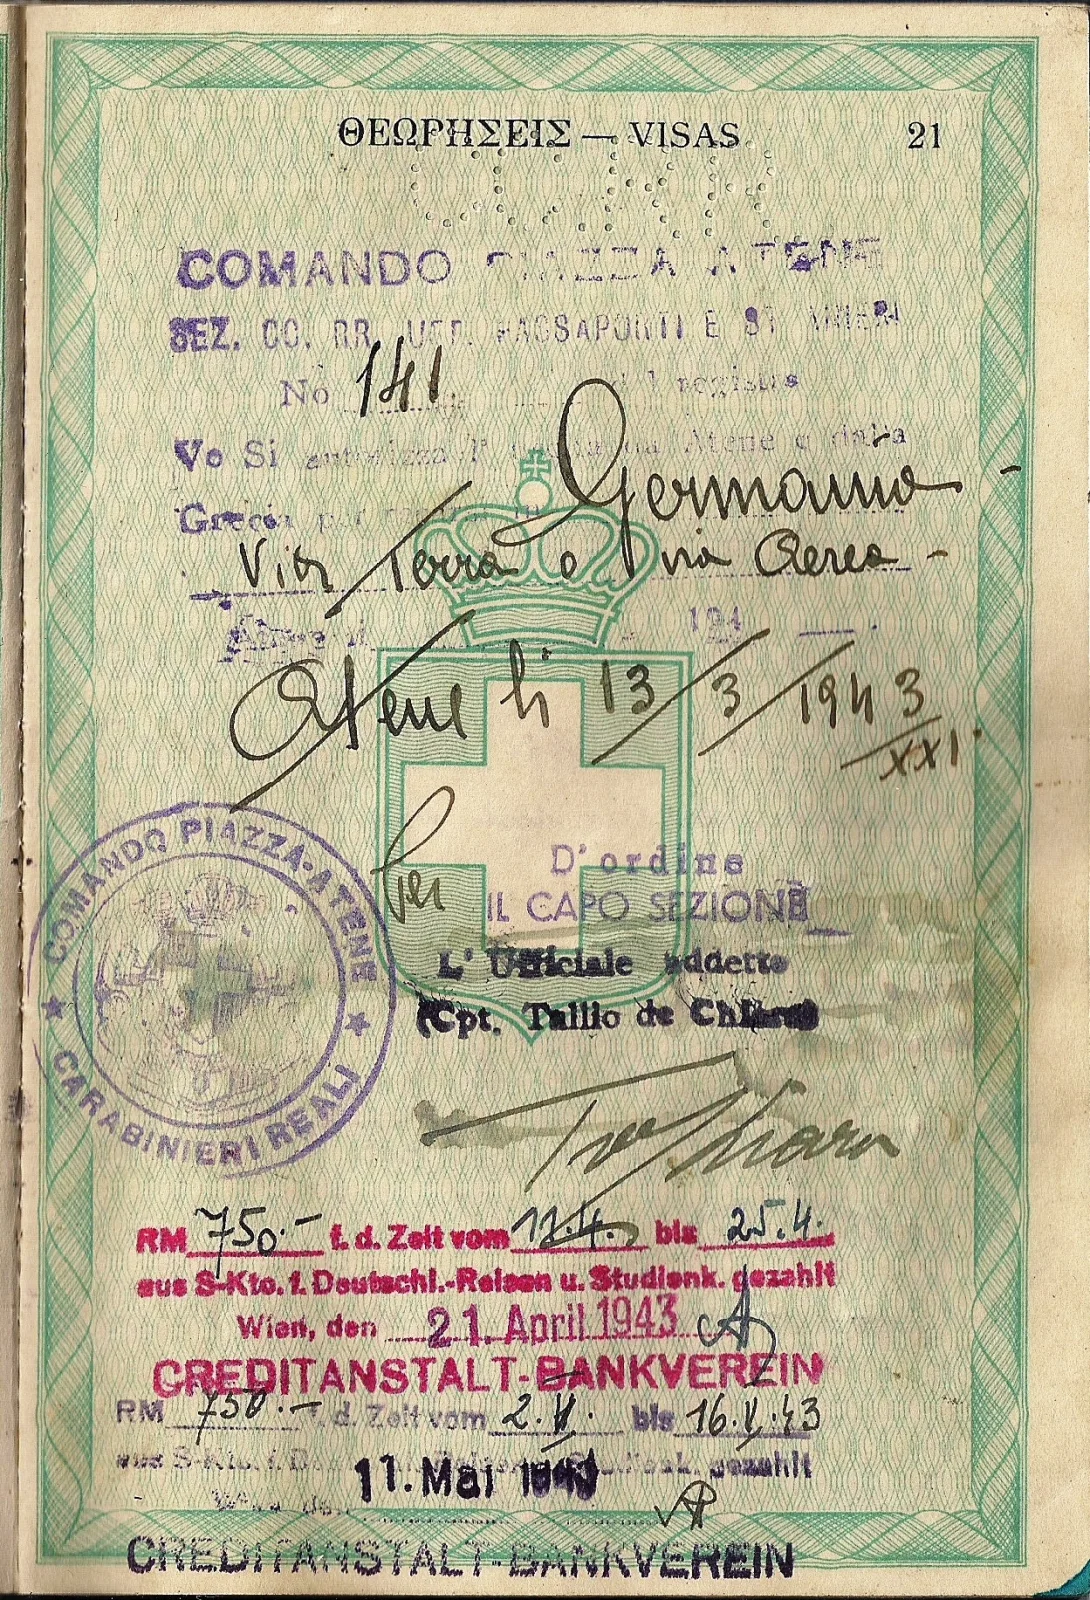 ΘΕΩΡΗΣΕΙΣ — VISAS 21
COMANDO PIAZZA ATENE
SEZ. CC. RR. UFF. PASSAPORTI E STRANIERI
No 141 del registro
Ve Si autorizza l' Atene e dalla
Grecia per Germania -
Via Terra o via Aerea -
194
Atene li 13/3/1943
XXI.
COMANDO PIAZZA-ATENE
★ CARABINIERI REALI ★
Per D'ordine
IL CAPO SEZIONE
L' Ufficiale addetto
(Cpt. Tallio de
RM 750.- f. d. Zeit vom 12.4. bis 25.4.
aus S-Kto. f. Deutschl.-Reisen u. Studienk. gezahlt
Wien, den 21. April 1943
CREDITANSTALT-BANKVEREIN
RM 750.- f. d. Zeit vom 2.V. bis 16.V.43
aus S-Kto. f. D gezahlt
11. Mai 1943
CREDITANSTALT-BANKVEREIN